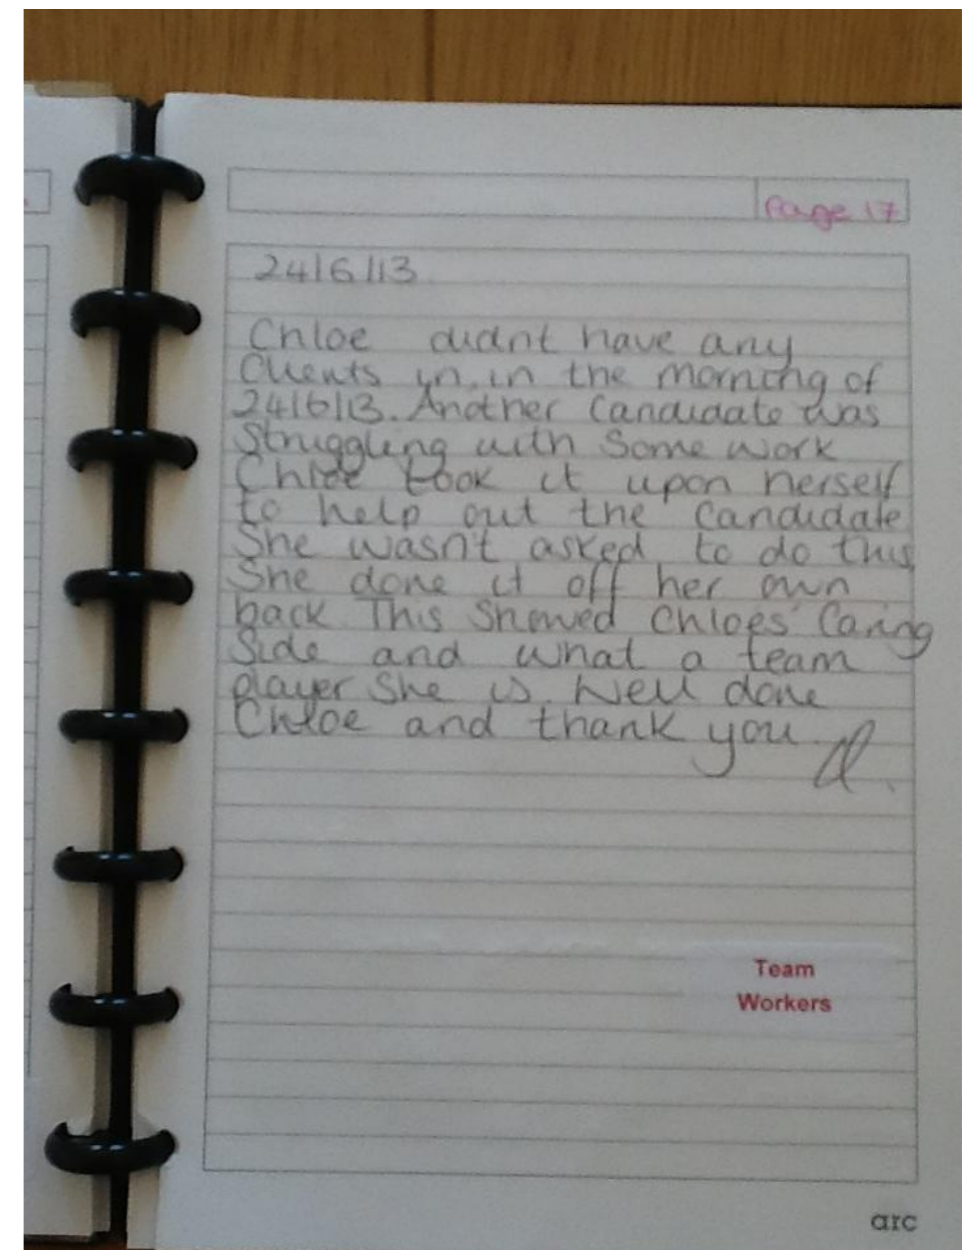 Page 17
24/6/13
Chloe didnt have any
Clients in in the morning of
24/6/13. Another Candidate was
Struggling with Some work
Chloe took it upon herself
to help out the Candidate
She wasn't asked to do this
She done it off her own
back This Showed Chloes' Caring
Side and what a team
player She is. Well done
Chloe and thank you
Team
Workers
arc